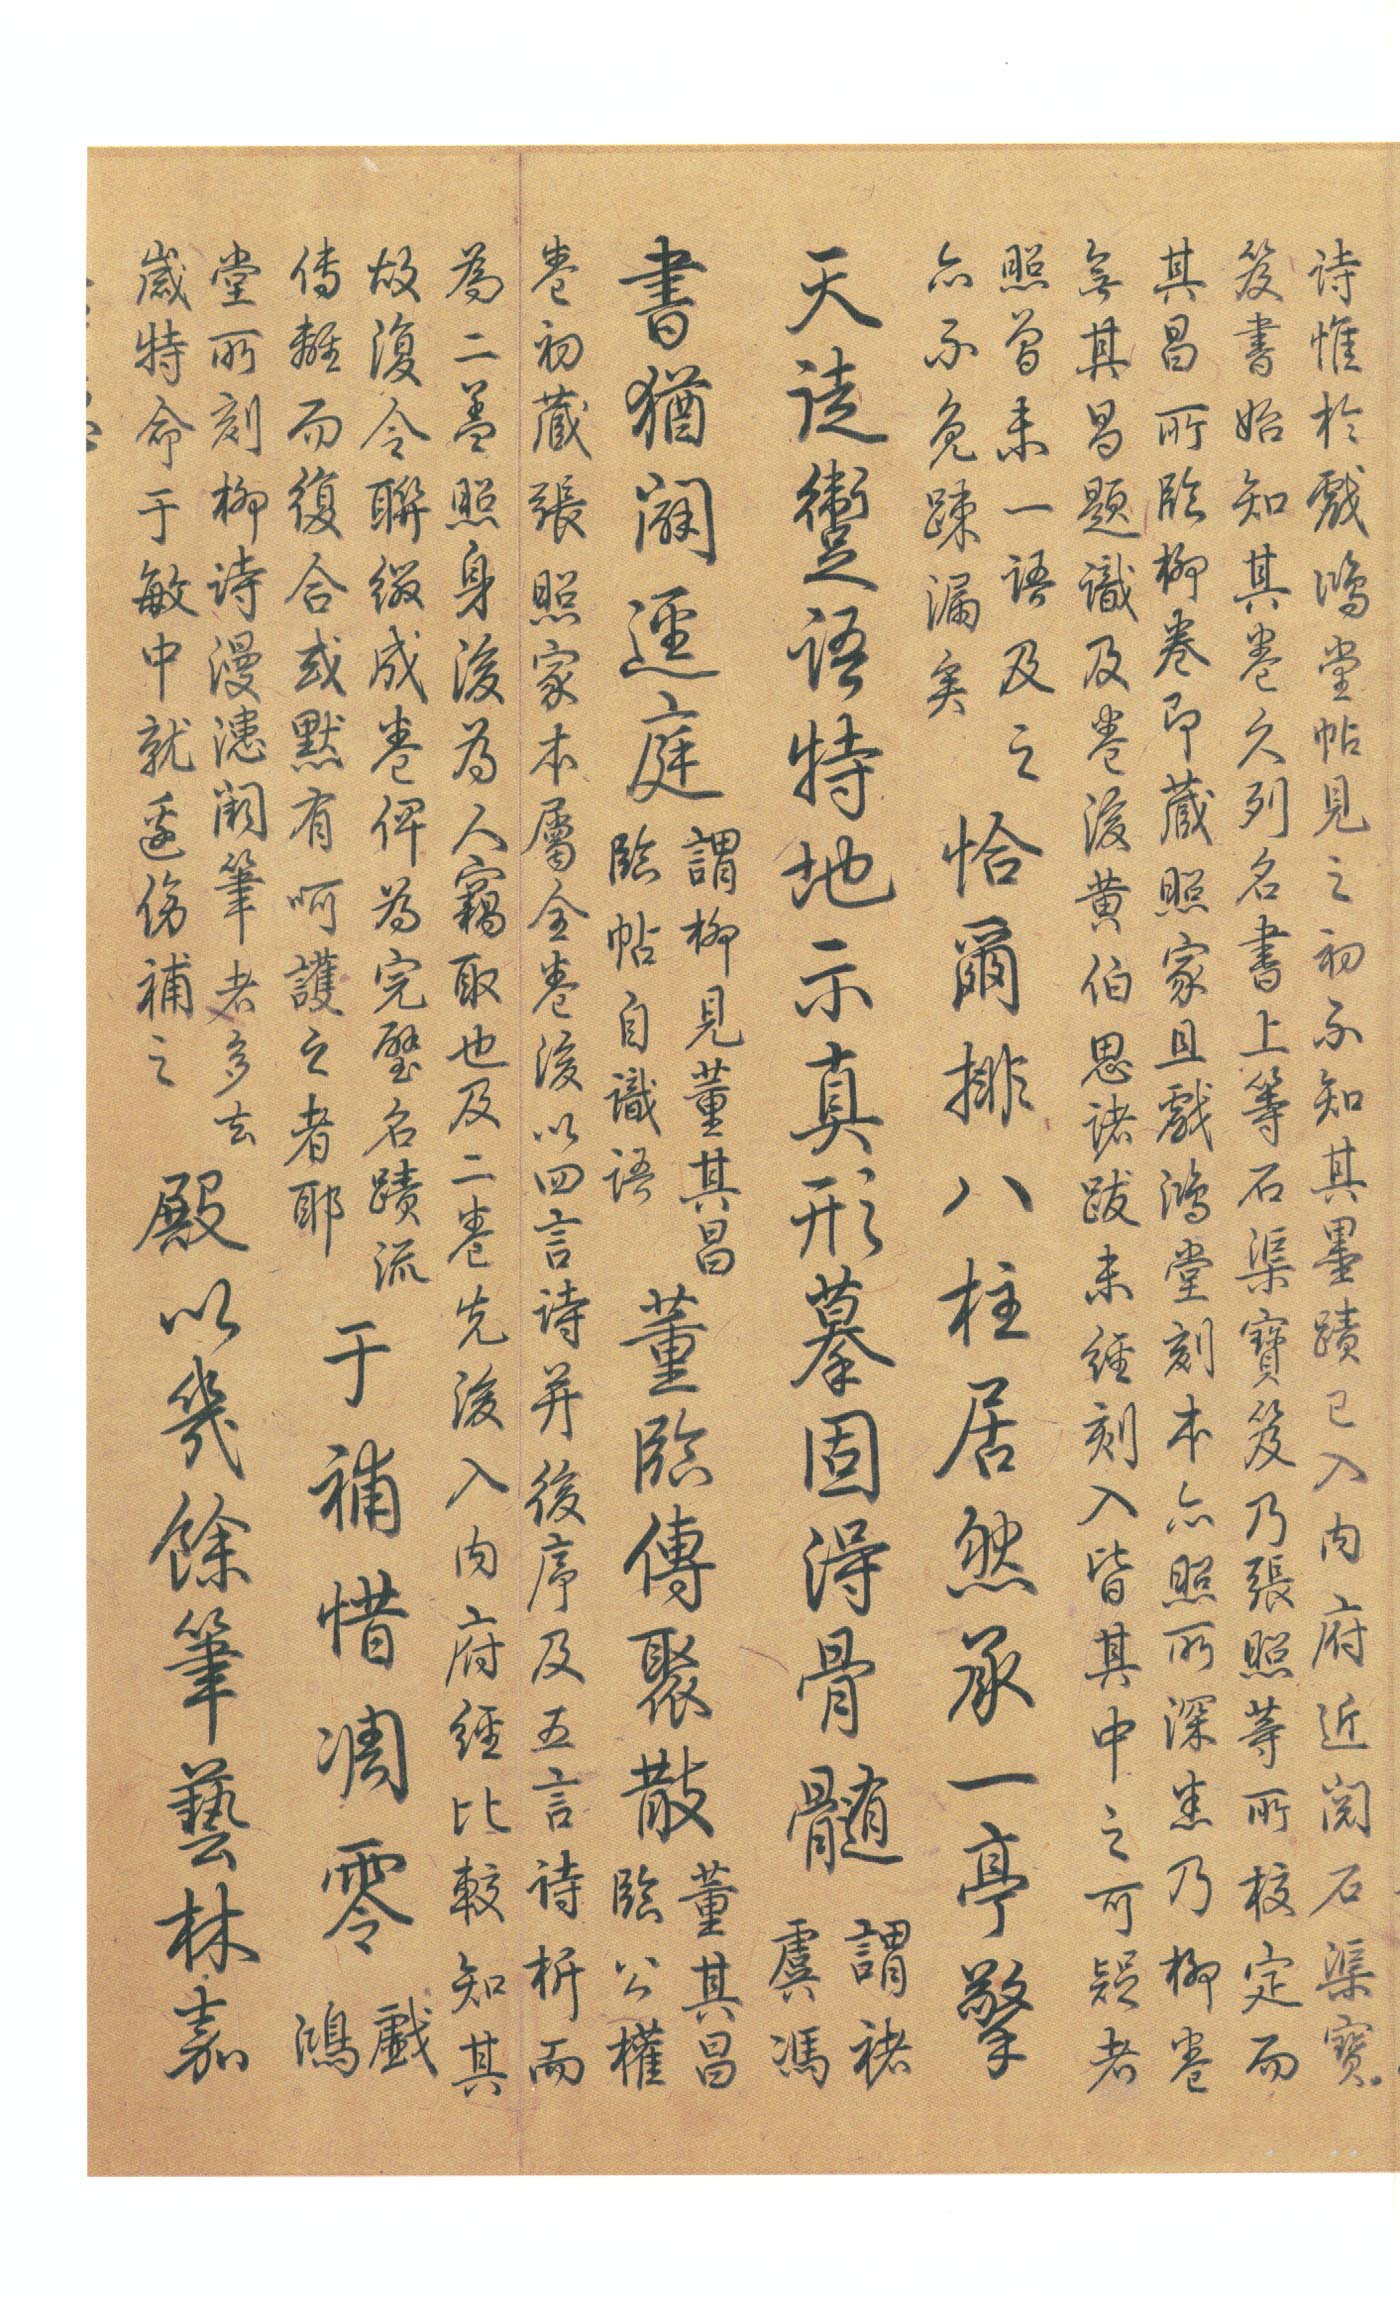 詩惟於戲鴻堂帖見之初不知其墨蹟已入內府近閱石渠寶
笈書始知其卷久列名書上等石渠寶笈乃張照等所校定而
其昌所臨柳卷即藏照家且戲鴻堂刻本亦照所深悉乃柳卷
無其昌題識及卷後黃伯思諸跋未經刻入皆其中之可疑者
照曾未一語及之
亦不免疎漏矣
恰爾排八柱居然承一亭擎
天徒躗語特地示真形摹固得骨髓
謂褚
虞馮
書猶闢逕庭
謂柳見董其昌
臨帖自識語
董臨傳聚散
董其昌
臨公權
卷初藏張照家本屬全卷後以四言詩并後序及五言詩析而
為二蓋照身後為人竊取也及二卷先後入內府經比較知其
故復令聯綴成卷俾為完璧名蹟流
傳離而復合或默有呵護之者耶
于補惜凋零
戲
鴻
堂所刻柳詩漫漶闕筆者多去
歲特命于敏中就邊傍補之
殿以幾餘筆藝林嘉